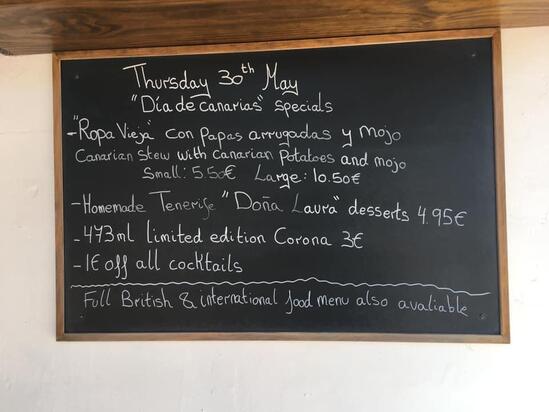 Thursday 30th May
"Día de canarias" specials
-"Ropa Vieja" con papas arrugadas y mojo
Canarian stew with canarian potatoes and mojo
Small: 5.50€ Large: 10.50€
-Homemade Tenerife "Doña Laura" desserts 4.95€
-473ml limited edition Corona 3€
-1€ off all cocktails
Full British & international food menu also avaliable